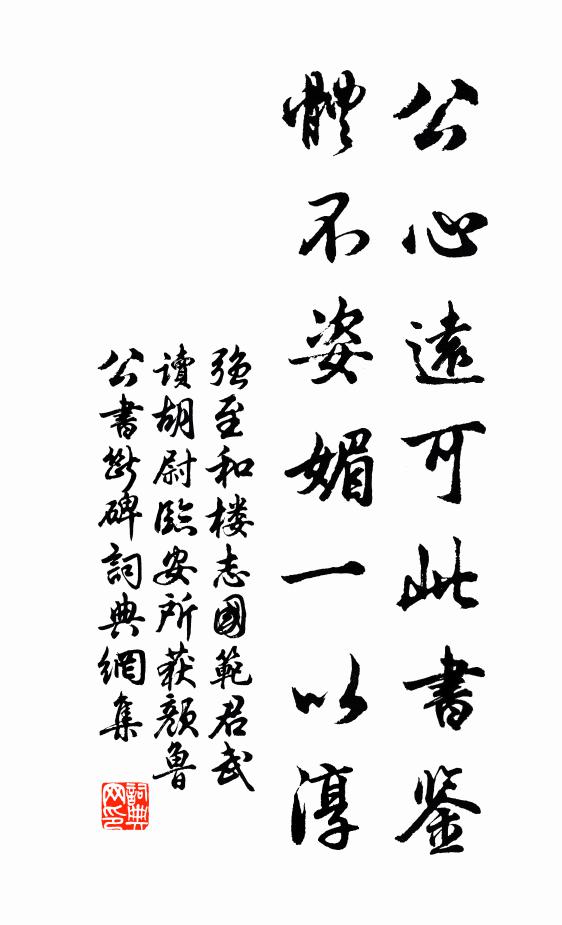 公心遠可此書鉴
體不姿媚一以淳
强至和楼志國範君武
讀胡尉臨安所获顏魯
公書斷碑詞典網集
詞典网印